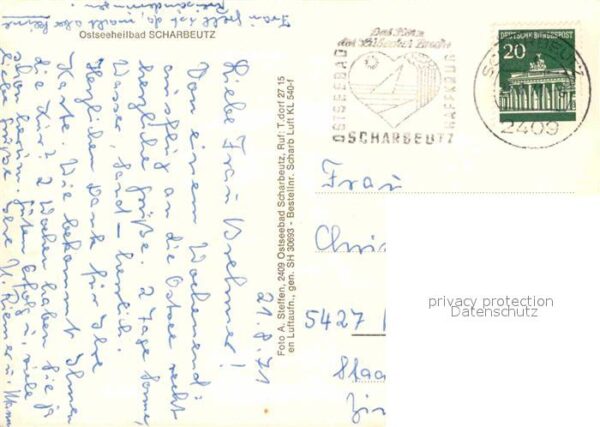 Ostseeheilbad SCHARBEUTZ
21.8.71
Liebe Frau Brehmer!
Von einem Wochenend-
ausflug an die Ostsee recht
herzliche Grüße. 2 Tage Sonne,
Wasser Sand - herrlich.
Herzlichen Dank für Ihre
Karte. Wie bekommt Ihnen
die Kur? 2 Wochen haben Sie ja
schon herum. Guten Erfolg u. viele
liebe Grüße Ihre
Frau
Foto A. Steffen, 2409 Ostseebad Scharbeutz, Ruf: T.dorf 27 15
en Luftaufn., gen. SH 30693 - Bestellnr. Scharb Luft KL 540-f
Das Herz
der Lübecker Bucht
OSTSEEBAD
HAFFKRUG
SCHARBEUTZ
DEUTSCHE BUNDESPOST
20
SCHARBEUTZ
2409
Frau
Chri
5427
Staa
Zi
privacy protection
Datenschutz